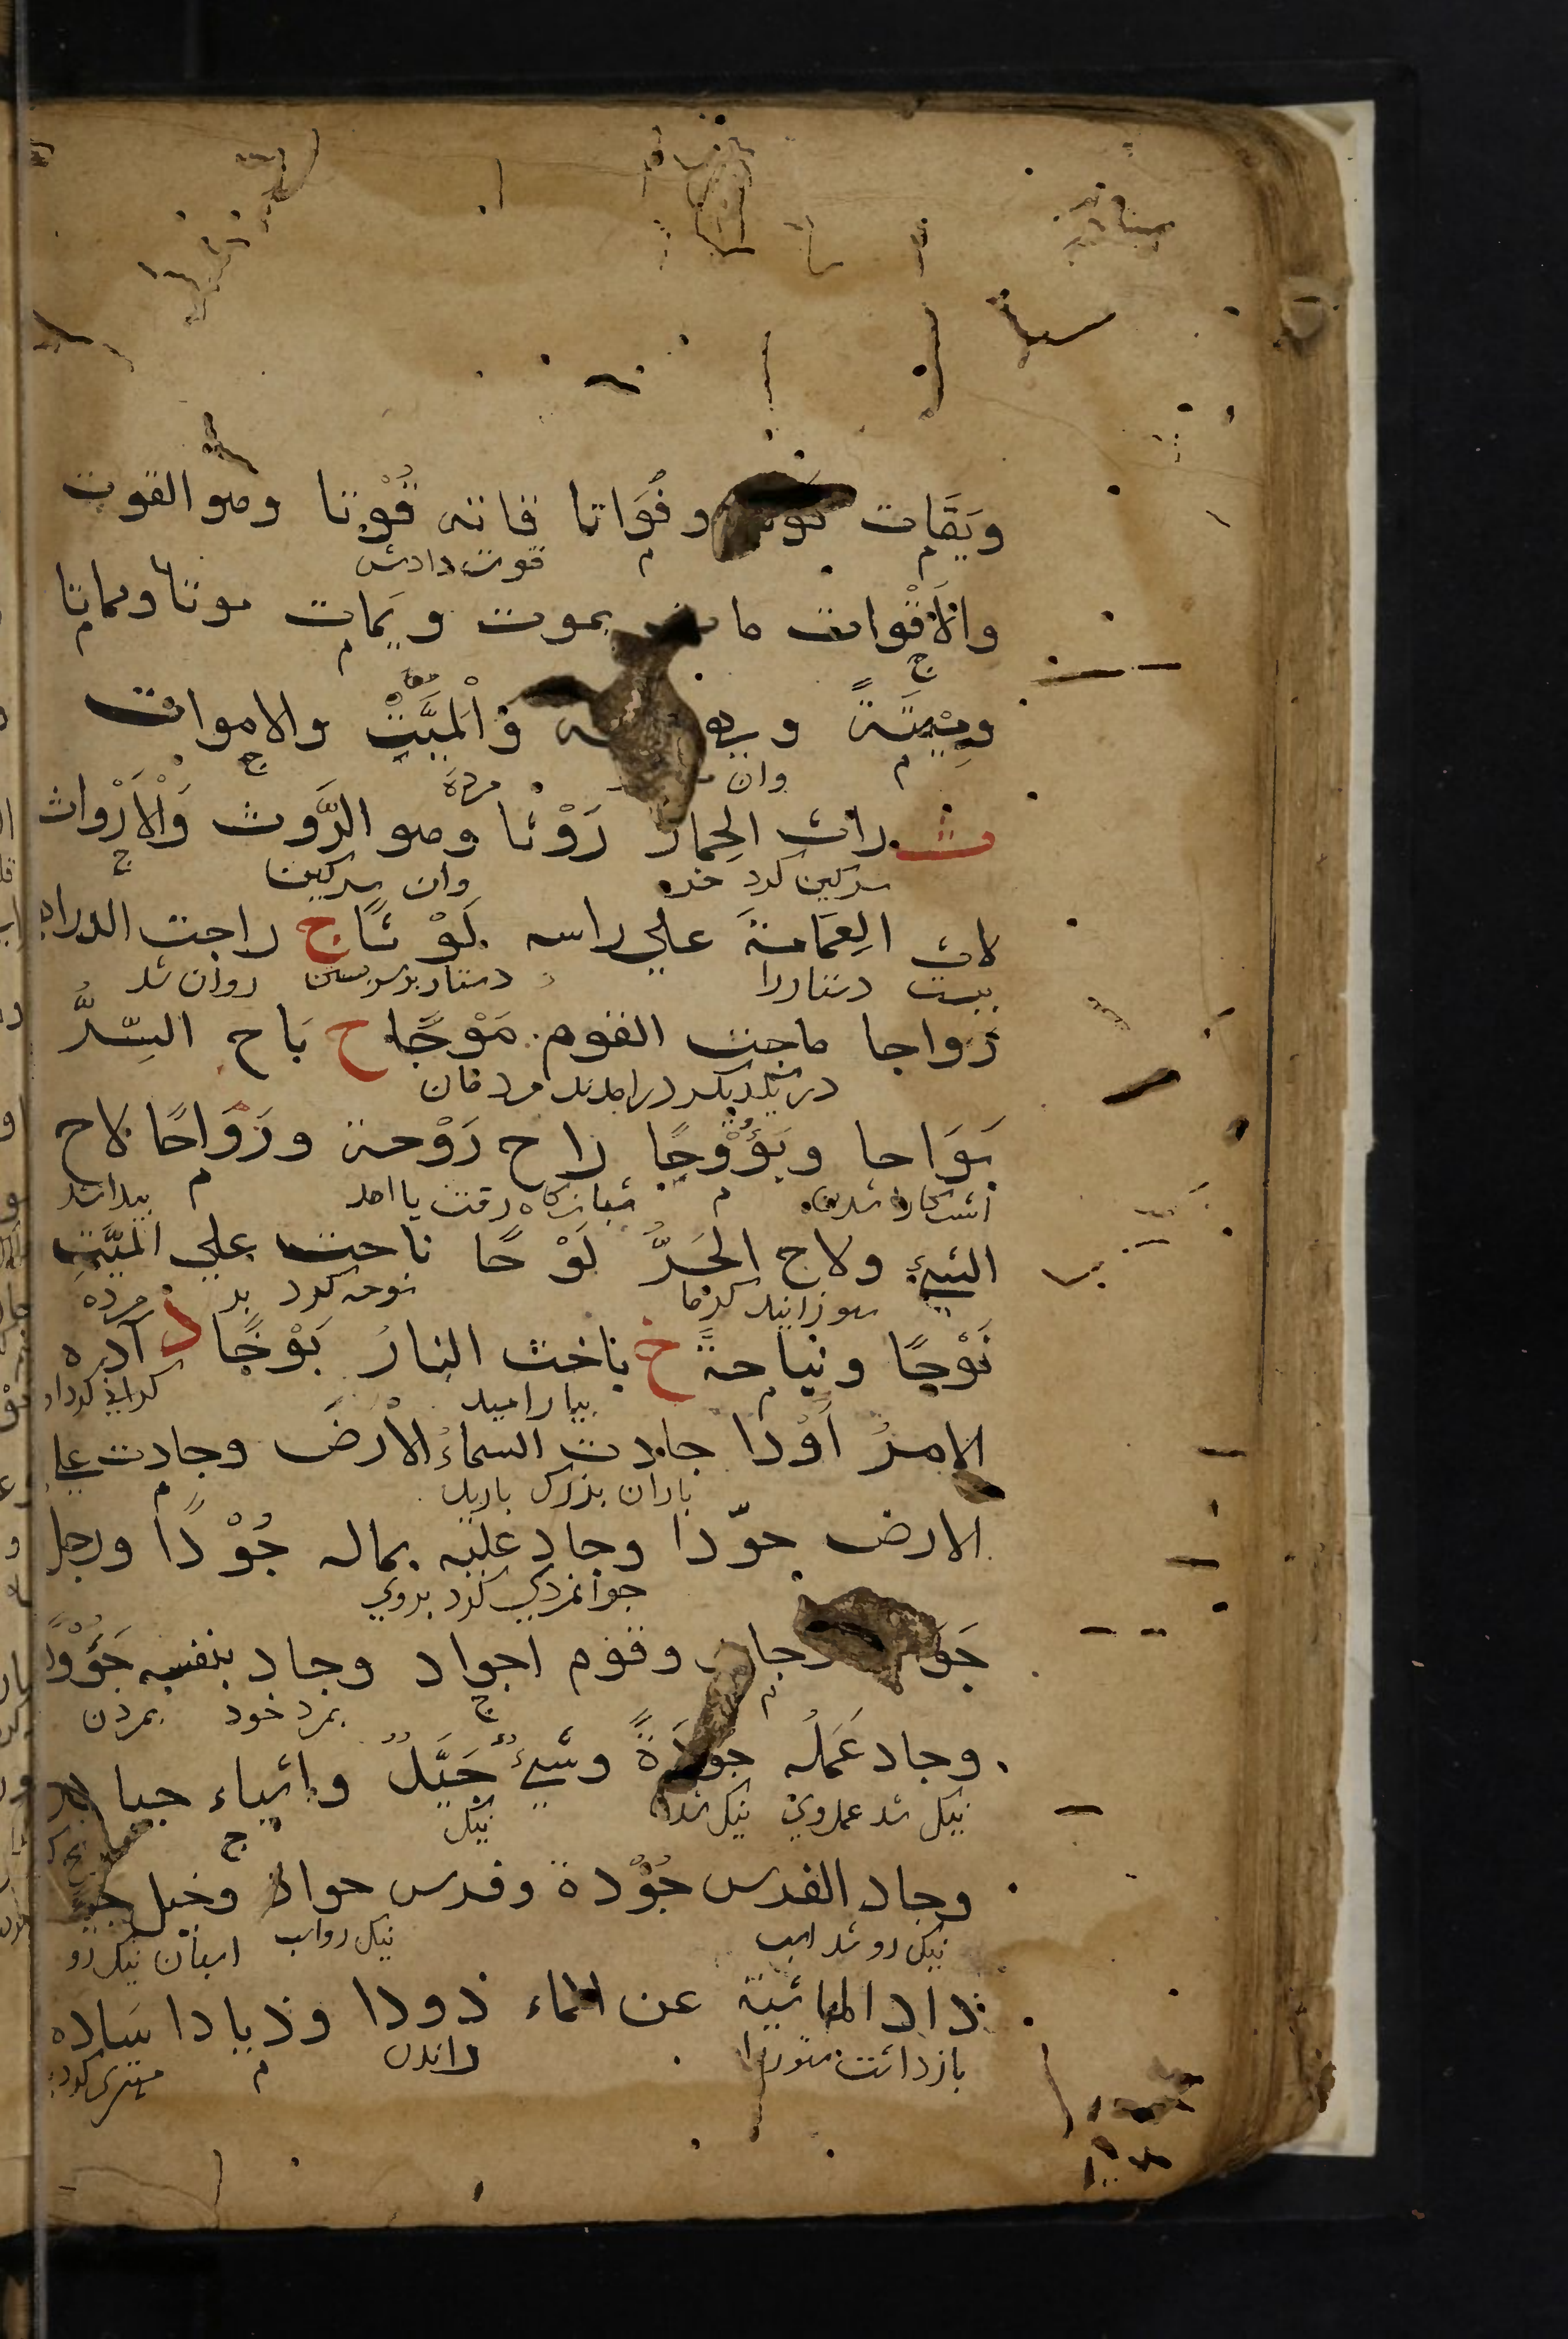 ويَقَات وفُوَاتا قاته قُوْتا وهو القوت
قوت دادش م
والاَقْوات مات يموت ويَمات موتا ومماتا
ج م
ومِيْتَةً والمَيِّتْ والاموات
م وان مرده ج
ث راث الحِمارُ رَوْثا وهو الرَّوث وَالْاَرْواث
سركين كرد خره وان سركين ج
لاث العِمَامَةَ علي راسه لَوْثًا ج راجت الدراهم
ببست دستاررا دستار برسر بستن روان شد
رَواجا ماجت القوم مَوْجًا ح بَاح السِّرُّ
در يكديكر درامدند مردمان
بَوَاحا وبُؤُوْحًا راح رَوْحة ورَوَاحًا لاح
اشكارا شدن م شبانكاه رفت يا امد م بيدا شد
الشيءُ ولاح الحَرُّ لَوْحًا ناحت علي المَيِّتِ
سوزانيد كرما نوحه كرد بر مرده
نَوْحًا ونياحةً خ باخت النارُ بَوْخًا د آده
م بياراميد كران كرد او
الامرُ أَوْدًا جادت السماءُ الأرضَ وجادت علي
باران بزرك باريد م
الارض جوْدا وجاد عليه بماله جُوْدًا ورجل
جوانمردي كرد بروي
وقوم اجواد وجاد بنفسه جَؤُوْدًا
م ج بمرد خود بمردن
وجاد عَمَلُه جُوْدَةً وشيءٌ جَيِّدٌ واشياء جياد
نيك شد عمل وي نيك شدن نيك ج
وجاد الفرس جُوْدة وفرس جواد وخيل
نيك رو شد اسب نيك رو اسب اسبان نيك رو
ذاد الماشية عن الماء ذودا وذيادا ساده
بازداشت ستوررا راندن م مهتري كرد